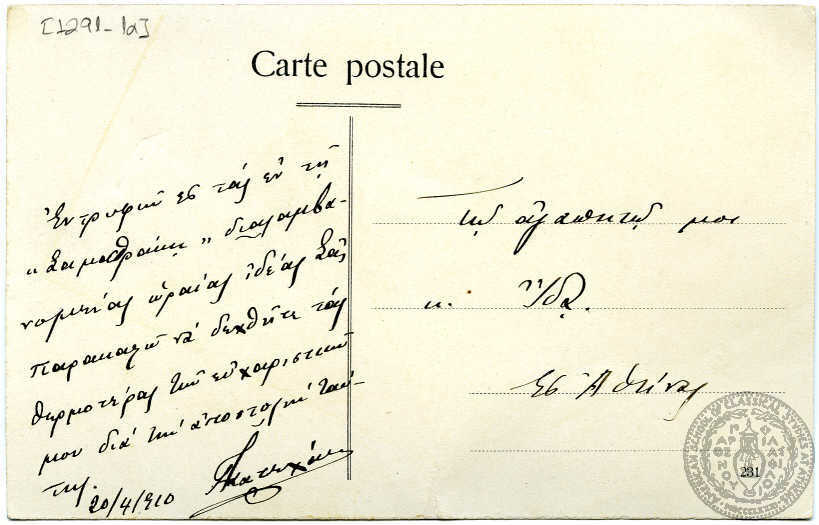 [1291-1a]
Carte postale
Ἐντρυφῶν εἰς τὰς ἐν τῇ
"Σαμοθράκῃ" διαλαμβα-
νομένας ὡραίας ἰδέας Σᾶς
παρακαλῶ νὰ δεχθῆτε τὰς
θερμοτέρας τῶν εὐχαριστιῶν
μου διὰ τὴν ἀποστολὴν ταύ-
την.
20/4/910
Τῷ ἀγαπητῷ μοι
κ. Ἴδᾳ.
Εἰς Ἀθήνας
231